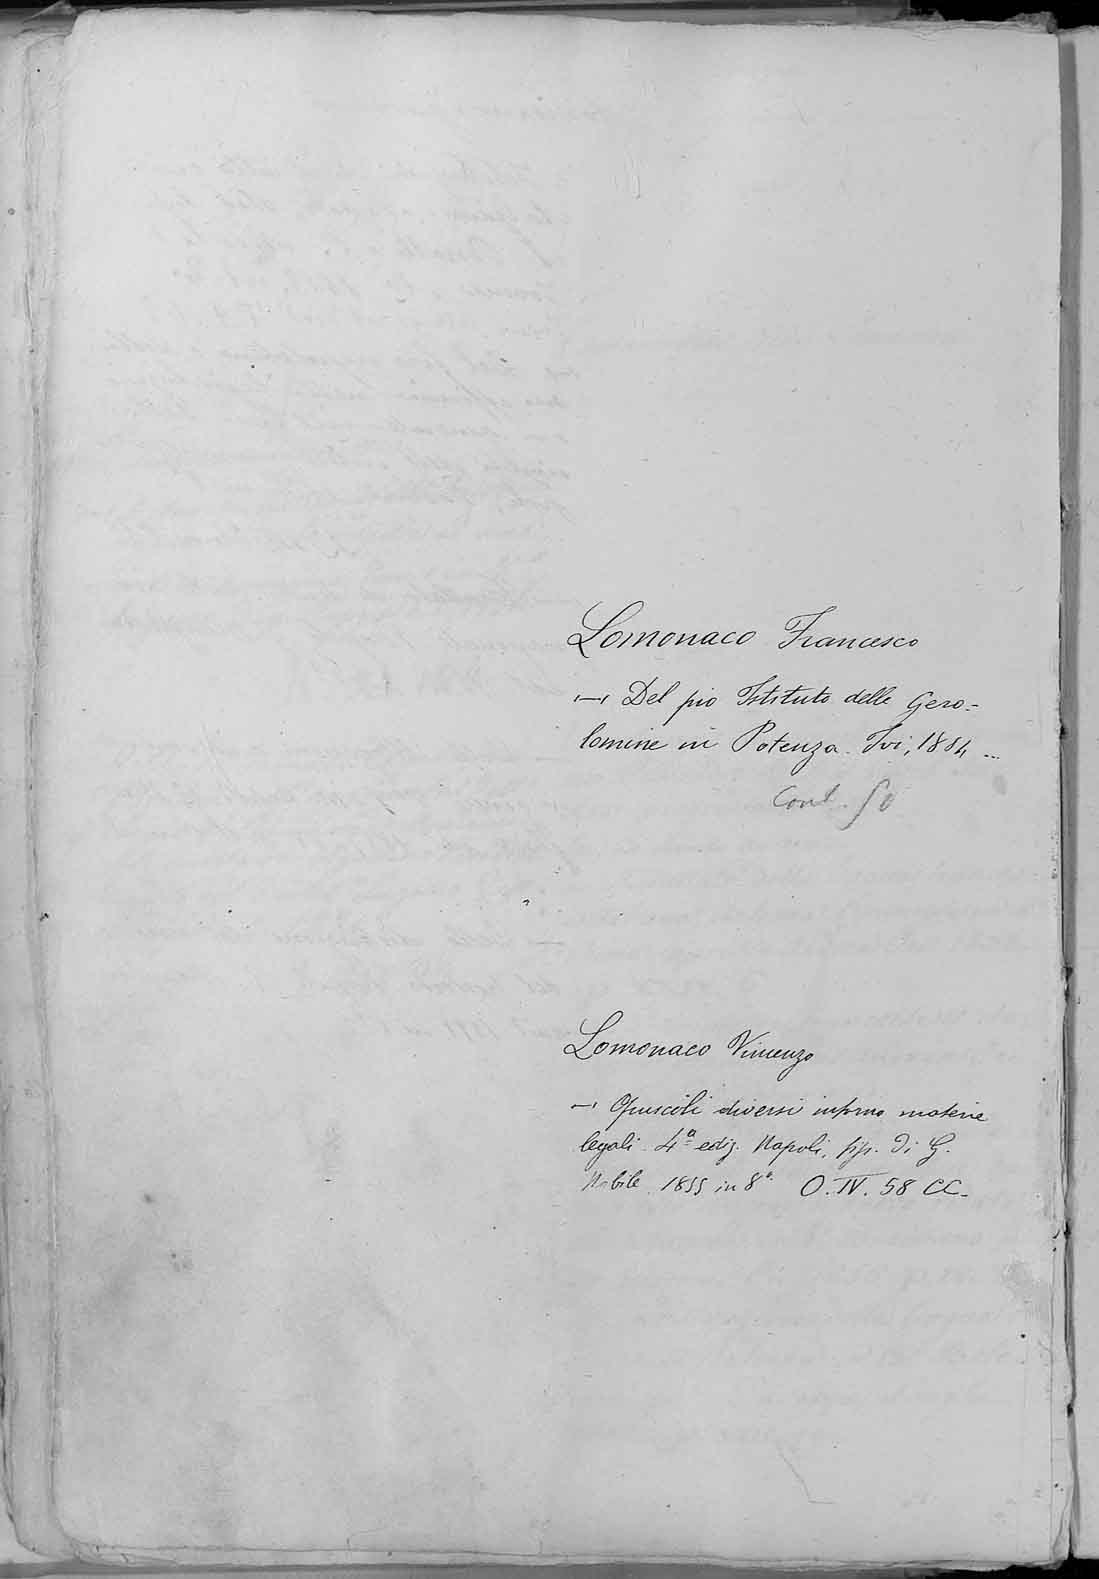 Lomonaco Francesco
— Del pio Istituto delle Gero-
lomine in Potenza. Ivi, 1884 ...
Cont. 50
Lomonaco Vincenzo
— Opuscoli diversi intorno materie
legali. 4ª ediz. Napoli, tip. di G.
Nobile 1855 in 8º. O. IV. 58 CC.